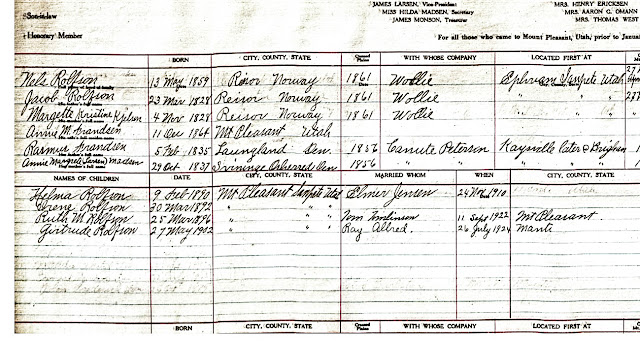 JAMES LARSEN, Vice-President
MISS HILDA MADSEN, Secretary
JAMES MONSON, Treasurer
MRS. HENRY ERICKSEN
MRS. AARON G. OMANN
MRS. THOMAS WEST
Son-in-law
Honorary Member
For all those who came to Mount Pleasant, Utah, prior to Janua
BORN CITY, COUNTY, STATE Crossed Plains WITH WHOSE COMPANY LOCATED FIRST AT
Nels Rolfson 13 May 1859 Reisor Norway 1861 Wollie Ephraim Sanpete Utah 27
Jacob Rolfson 23 Mar 1828 Reisor Norway 1861 Wollie " " "
Margette Kristine 4 Nov 1828 Reisor Norway 1861 Wollie " " "
Annie M. Brandsen 11 Dec 1864 Mt Pleasant Utah
Rasmus Brandsen 5 Feb 1835 Den. 1856 Canute Peterson Kaysville
Annie Margrete Madsen 29 Oct 1837 1856 "
NAMES OF CHILDREN DATE CITY, COUNTY, STATE MARRIED WHOM WHEN CITY, COUNTY, STATE
Helma Rolfson 9 Feb 1890 Mt Pleasant Sanpete Utah Elmer Jensen 24 Nov 1910
Irene Rolfson 30 Mar 1892 " " "
Ruth M. Rolfson 25 Mar 1896 " " " Tom Tomlinson 11 Sept 1922 Mt Pleasant
Gertrude Rolfson 27 May 1902 " " " Ray Allred 26 July 1924 Manti
BORN CITY, COUNTY, STATE Crossed Plains WITH WHOSE COMPANY LOCATED FIRST AT